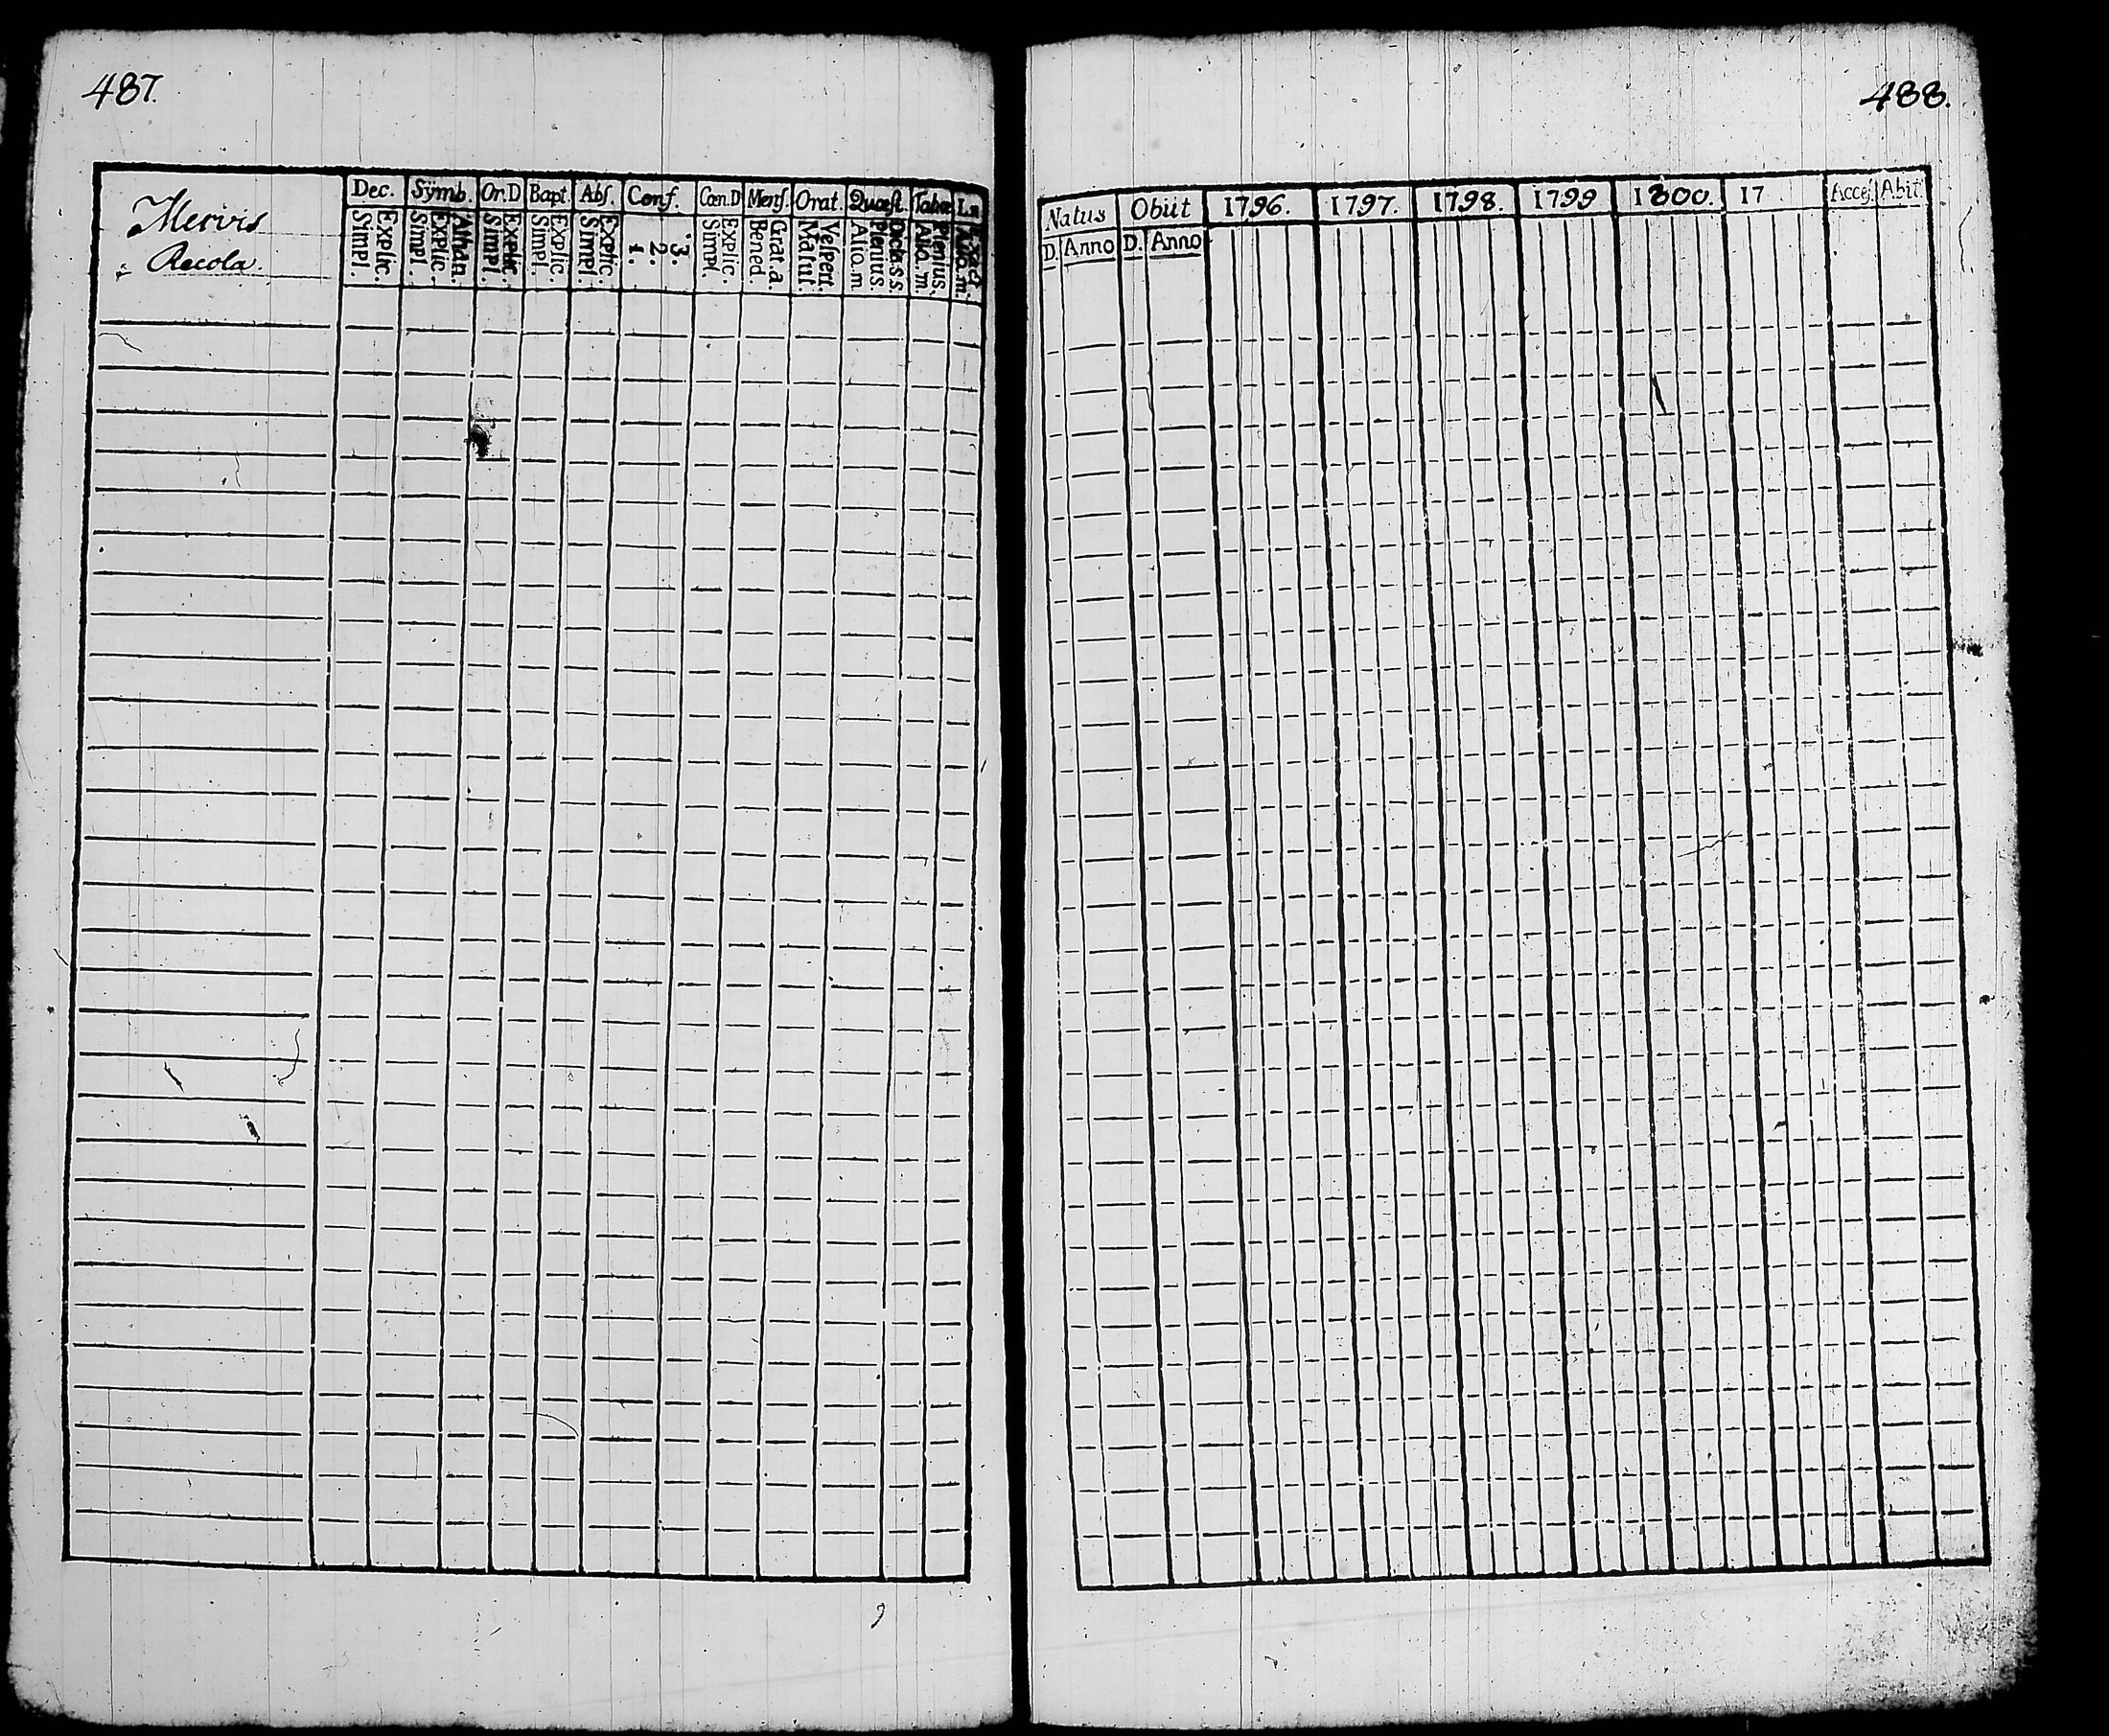 487.
Mervis
Recola.
Dec. Symb. Or.D Bapt. Abs. Conf. Cœn.D Mens. Orat. Quæst. Tabæ
Simpl. Explic. Simpl. Explic. Athan. Simpl. Explic. Simpl. Explic. Simpl. Explic. 1. 2. 3. Simpl. Explic. Bened. Grat.a. Matut. Vespert. Alio.m Plenius. Dicta.s.s. Alio.m. Plenius.
488.
Natus Obiit 1796. 1797. 1798. 1799 1800. 17 Acces. Abit
D. Anno D. Anno